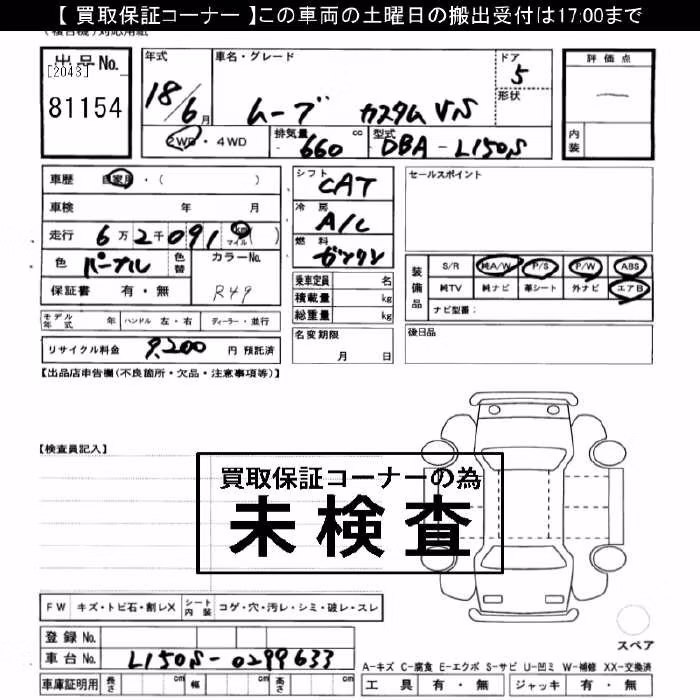 【 買取保証コーナー 】この車両の土曜日の搬出受付は17:00まで
出品No.
[2043]
81154
年式
18/6月
車名・グレード
ムーブ カスタム VS
ドア
5
形状
評価点
内装
2WD・4WD
排気量
660 cc
型式
DBA-L150S
車歴 自家用・( )
車検 年 月
走行 6万2千091 km マイル ( )
色 パープル
色替
カラーNo.
R49
保証書 有・無
シフト
CAT
冷房
A/C
燃料
ガソリン
乗車定員 名
積載量 kg
総重量 kg
セールスポイント
装備品
S/R 純A/W P/S P/W ABS
純TV 純ナビ 革シート 外ナビ エアB
ナビ型番:
モデル年式 年 ハンドル 左・右 ディーラー・並行
名変期限
月 日
後日品
リサイクル料金 9,200 円 預託済
【出品店申告欄(不良箇所・欠品・注意事項等)】
【検査員記入】
買取保証コーナーの為
未検査
FW キズ・トビ石・割レX
シート内装 コゲ・穴・汚レ・シミ・破レ・スレ
スペア
登録No.
車台No. L150S-0299633
A-キズ C-腐食 E-エクボ S-サビ U-凹ミ W-補修 XX-交換済
車庫証明用 長さ cm 幅 cm 高さ cm
工具 有・無 ジャッキ 有・無